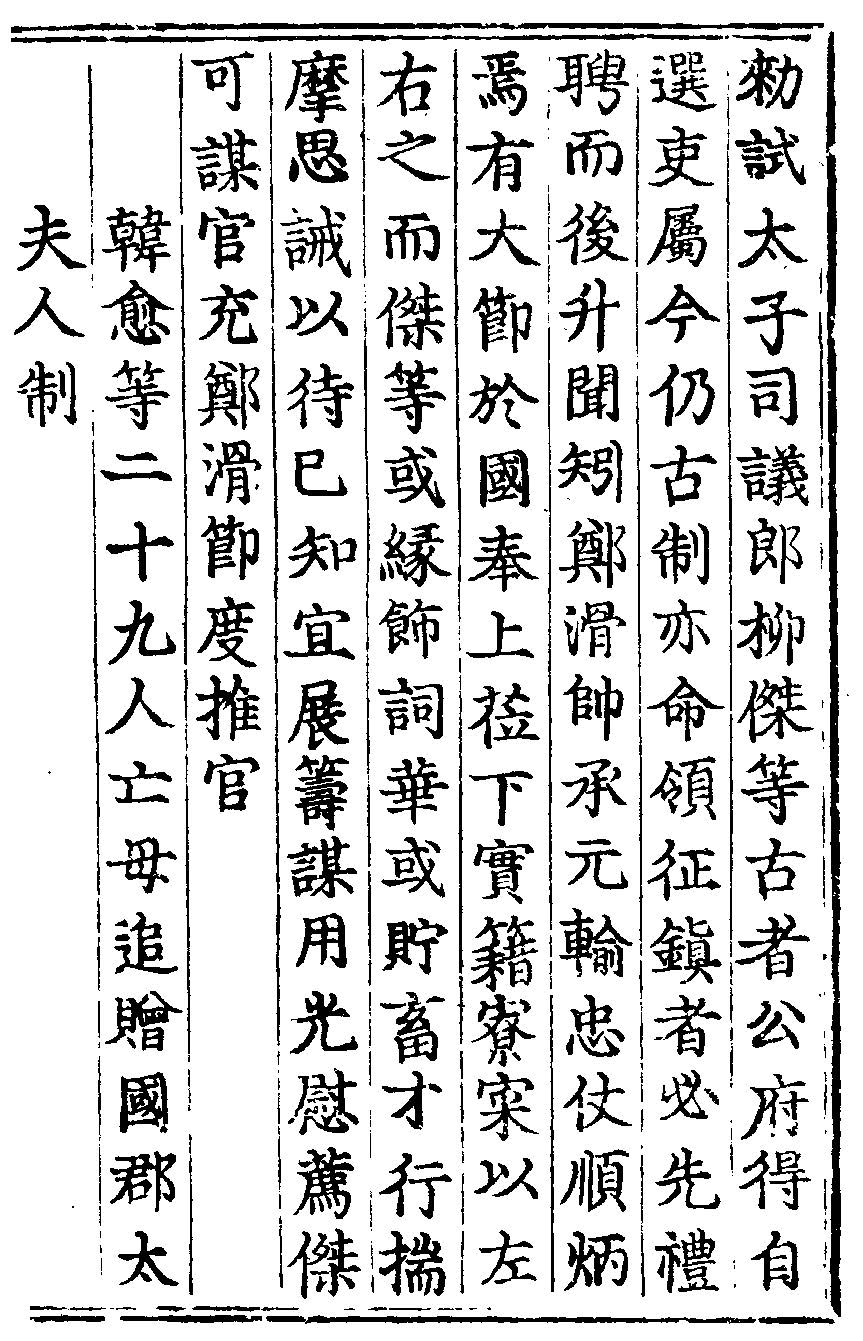 勑試太子司議郎柳傑等古者公府得自
選吏屬今仍古制亦命領征鎮者必先禮
聘而後升聞矧鄭滑帥承元輸忠仗順炳
焉有大節於國奉上莅下實籍寮寀以左
右之而傑等或緣飾詞華或貯畜才行揣
摩思誠以待已知宜展籌謀用光慰薦傑
可謀官充鄭滑節度推官
韓愈等二十九人亡母追贈國郡太
夫人制